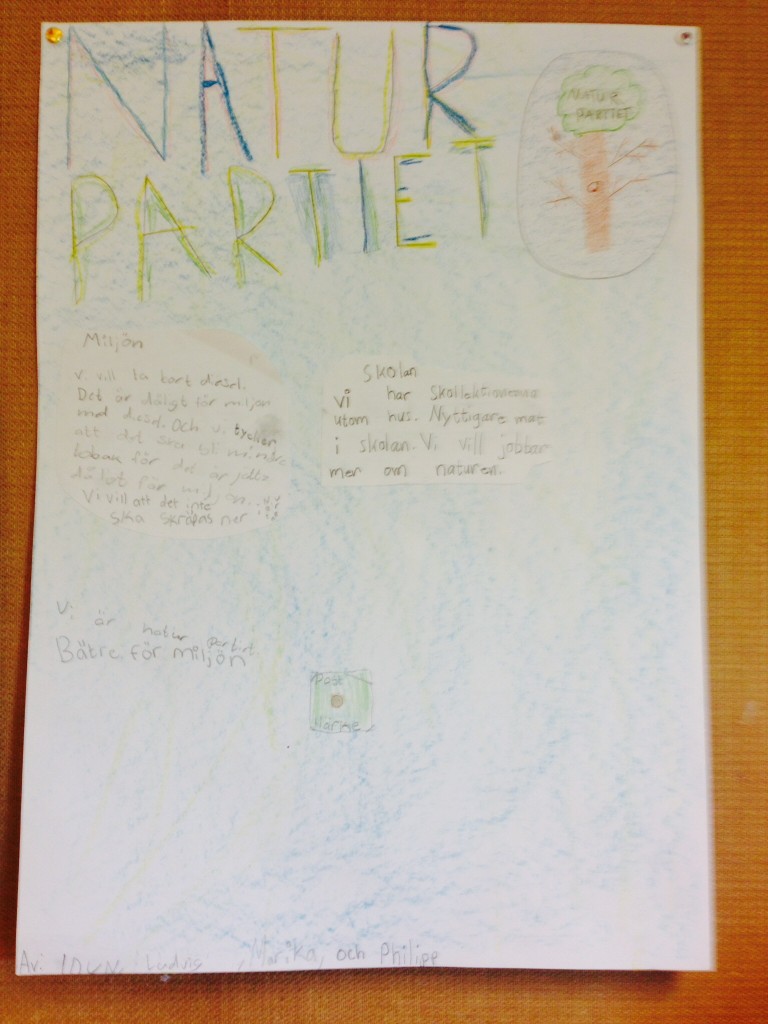 NATUR
PARTIET
NATUR
PARTIET
Miljön
Vi vill ta bort diesel.
Det är dåligt för miljön
med diesel. Och vi tycker
att det ska bli mindre
tobak för det är jätte
dåligt för miljön.
Vi vill att det inte
ska skräpas ner !!!
Skolan
vi har Skollektionerna
utom hus. Nyttigare mat
i skolan. Vi vill jobbar
mer om naturen.
Vi är natur partiet
Bätre för miljön
Post
Närme
Av: Ludvig, Marika, och Philipp